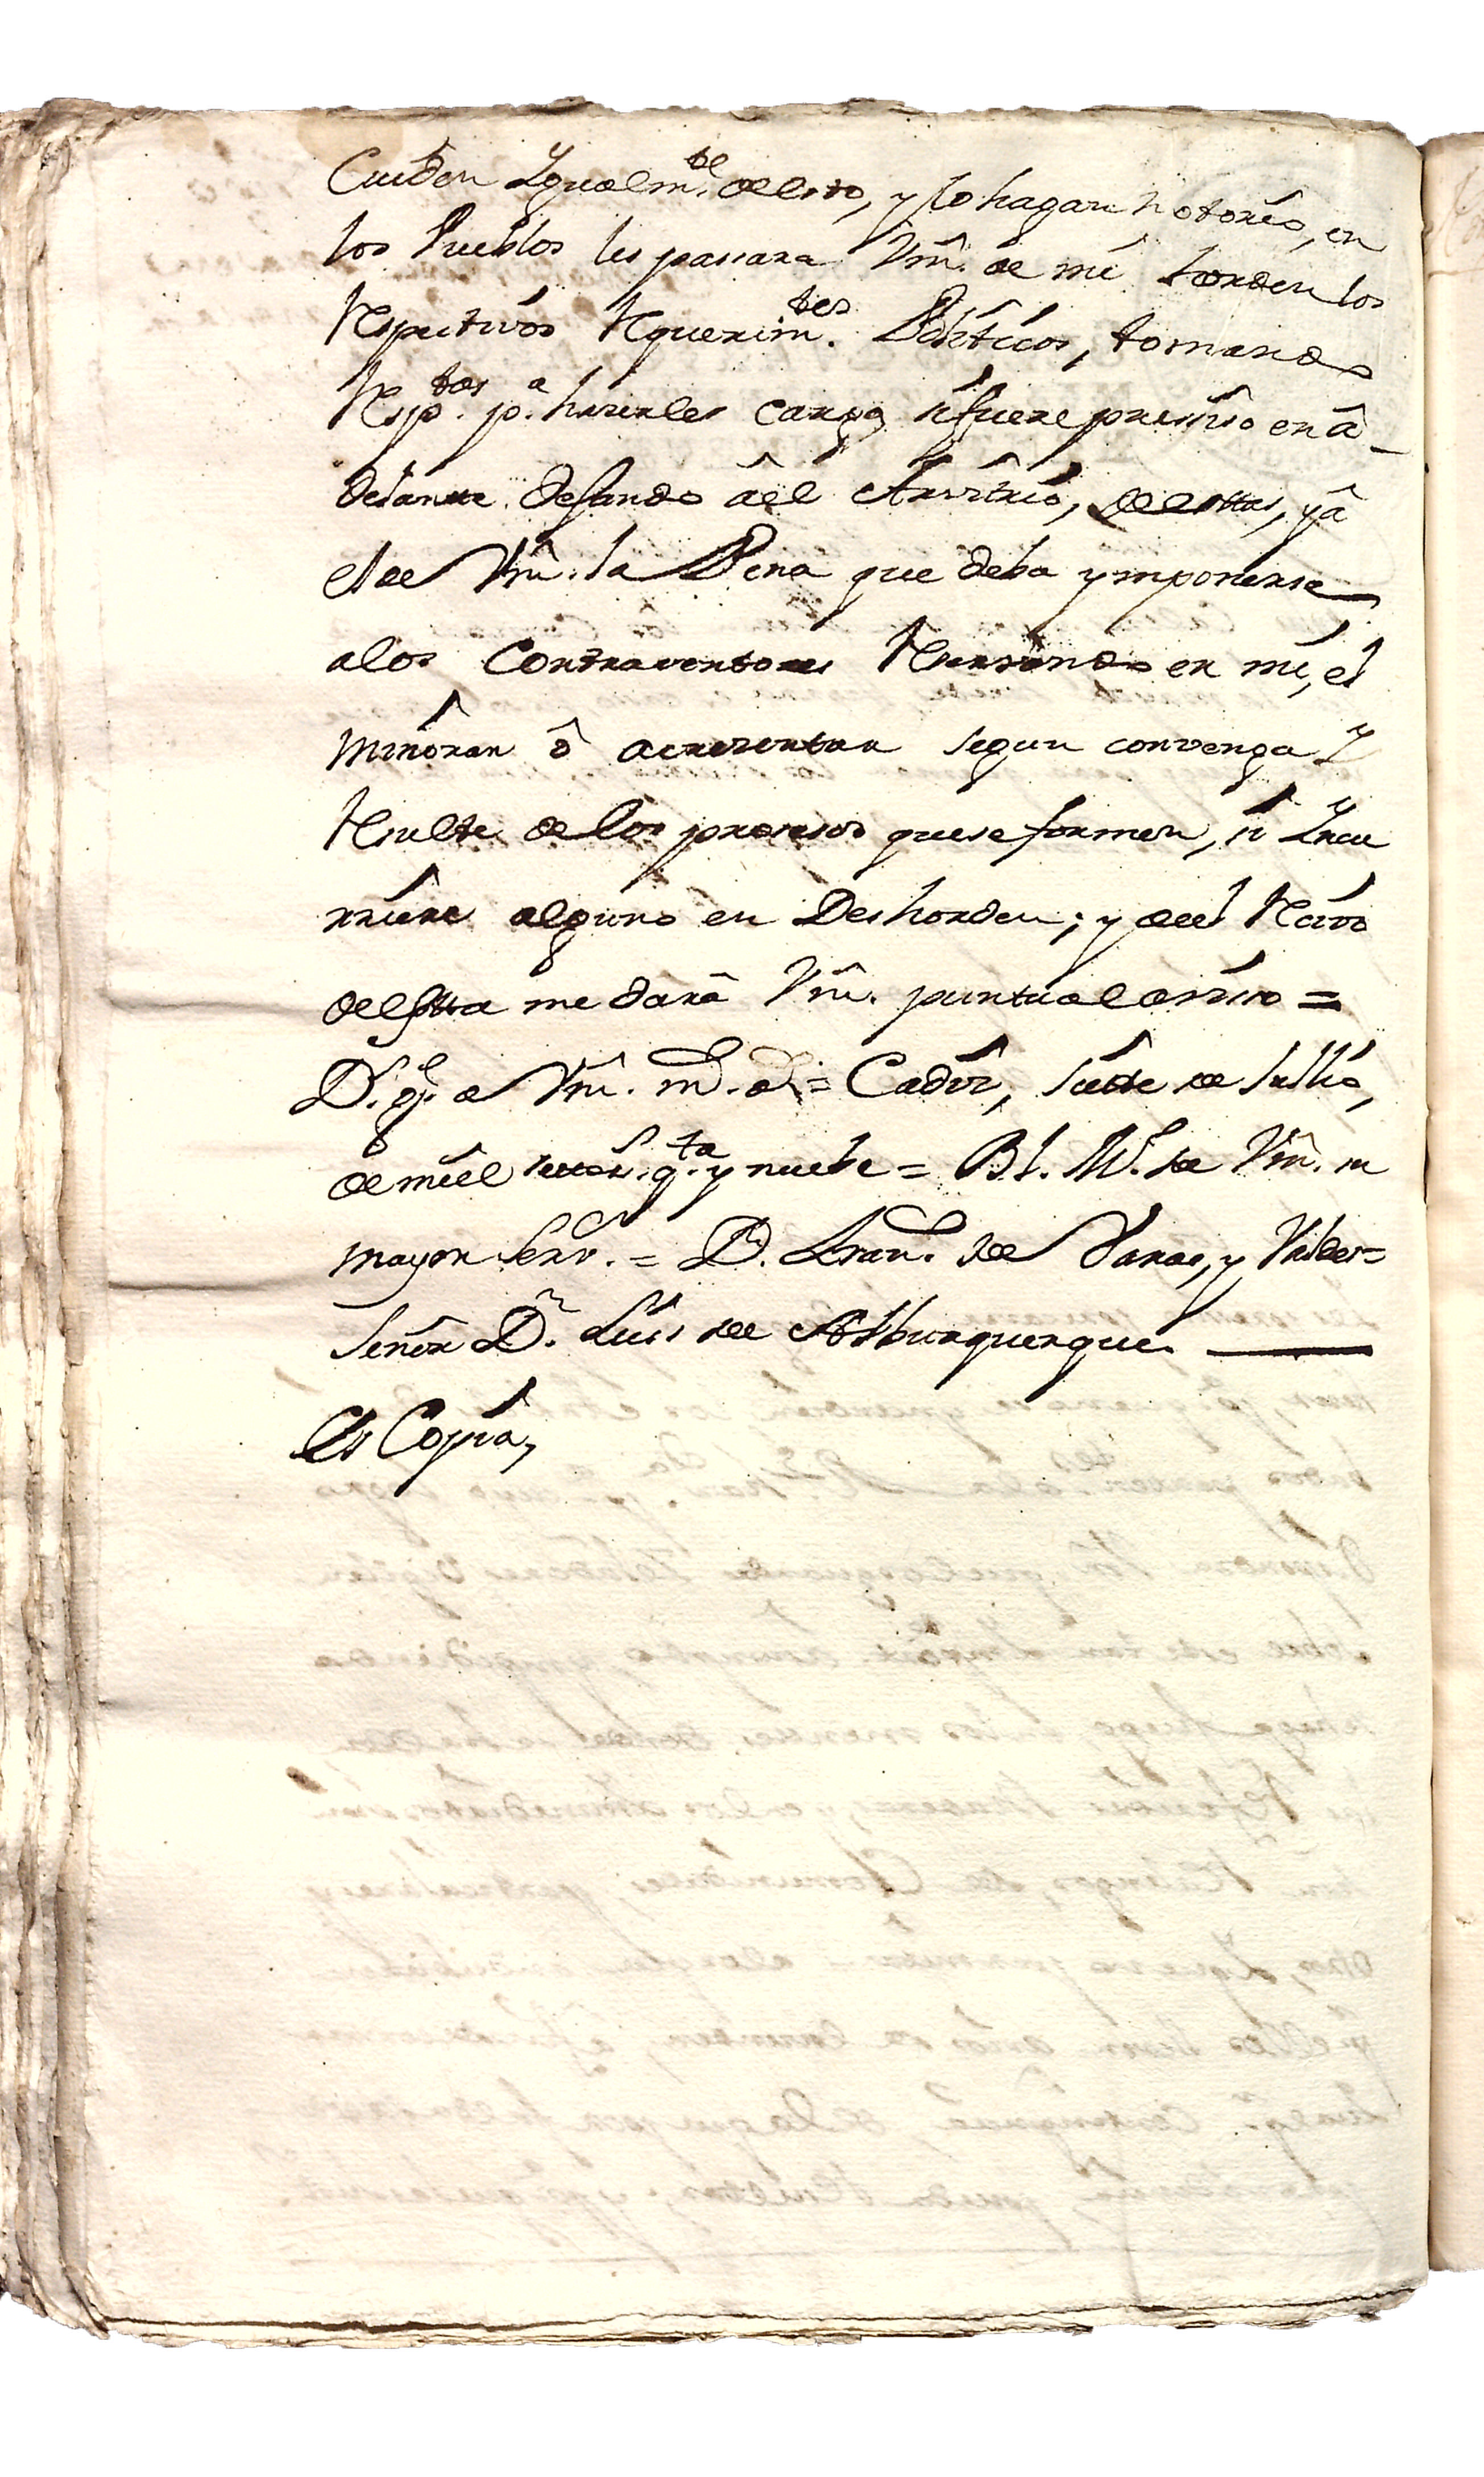 Cuiden Ygualm.te de esto, y lo hagan notorio, en
los Pueblos les passara Vm̂. de mi horden los
Respectivos Requerim.tos Políticos, tomando
Resp.tas p.a hazerles cargo si fuere preciso en â-
delante dejando âel Arvitrio, de estas, y â
el de Vm̂. la Pena que deba ymponerse
alos Contraventores Reservando en mi, el
Minôrar ô acrezentar segun convenga Y
Resulte de los prozesos que se formen, si Yncu
rriere alguno en Deshorden; y de el Rezivo
de esta me darâ Vm̂. puntual aviso =
D.s g.e a Vm̂. m.s a.s = Cadiz, siette de Jullio,
de miel settez.s q.ta y nuebe = B. l. M. de Vm̂. su
mayor serv.r = D. Fran.co de Varas, y Valdes =
Señor D.n Luis de Alburquerque.
Es Copia,